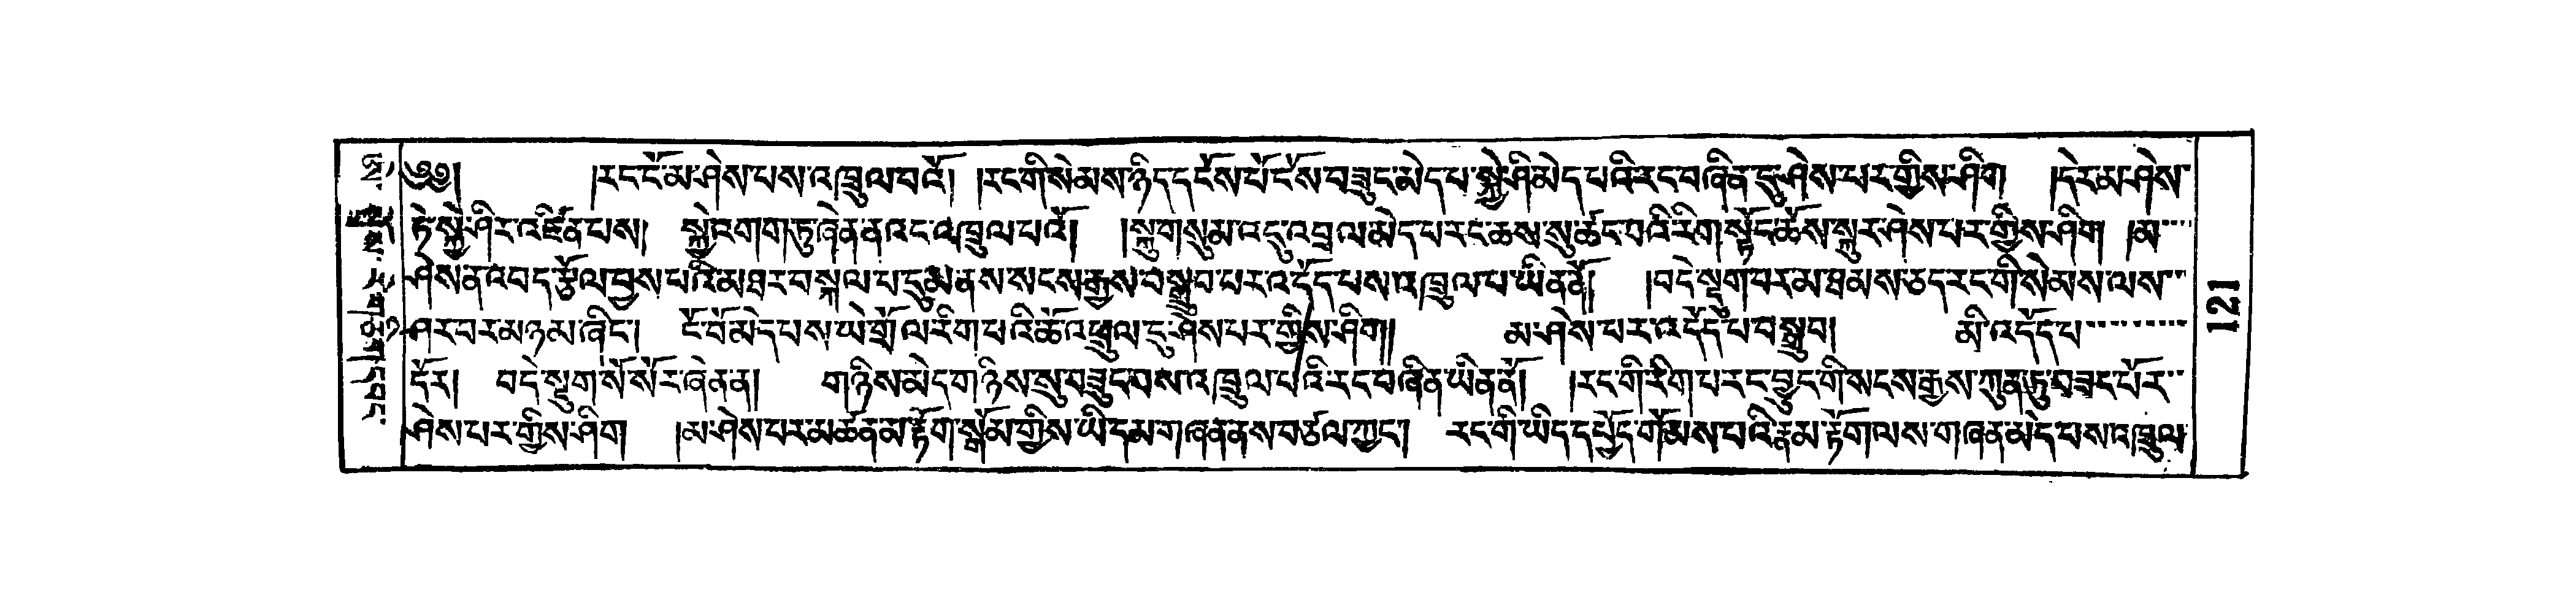 ༄༅། །རང་ངོ་མ་ཤེས་པས་འཁྲུལ་བའོ། །རང་གི་སེམས་ཉིད་དངོས་པོ་ངོས་བཟུང་མེད་པ་སྐྱེ་ཤི་མེད་པའི་རང་བཞིན་དུ་ཤེས་པར་གྱིས་ཤིག །དེར་མ་ཤེས་
ཏེ་སྐྱེ་ཤིར་འཛིན་པས། སྐྱེ་འགག་ཏུ་ཞེན་ན་འང་འཁྲུལ་པའོ། །སྐུ་གསུམ་འདུ་འབྲལ་མེད་པར་ང་ཆས་སུ་ཚང་བའི་རིག་སྟོང་ཆོས་སྐུར་ཤེས་པར་གྱིས་ཤིག །མ་
ཤེས་ན་འབད་རྩོལ་བྱས་པའི་མཐར་བསྐལ་པ་དུ་མ་ནས་སངས་རྒྱས་བསྒྲུབ་པར་འདོད་པས་འཁྲུལ་པ་ཡིན་ནོ། །བདེ་སྡུག་བར་མ་ཐམས་ཅད་རང་གི་སེམས་ལས་
ཤར་བར་མཉམ་ཞིང་། ངོ་བོ་མེད་པས་ཡེ་གྲོལ་རིག་པའི་ཆོ་འཕྲུལ་དུ་ཤེས་པར་གྱིས་ཤིག། མ་ཤེས་པར་འདོད་པ་བསྒྲུབ། མི་འདོད་པ་
དོར། བདེ་སྡུག་སོ་སོར་ཞེན་ན། གཉིས་མེད་གཉིས་སུ་བཟུང་བས་འཁྲུལ་པའི་རང་བཞིན་ཡིན་ནོ། །རང་གི་རིག་པ་རང་བྱུང་གི་སངས་རྒྱས་ཀུན་ཏུ་བཟང་པོར་
ཤེས་པར་གྱིས་ཤིག །མ་ཤེས་པར་མཚན་མ་རྟོག་སྒོམ་གྱིས་ཡི་དམ་གཞན་ནས་བཙལ་ཀྱང་། རང་གི་ཡིད་དཔྱོད་གོམས་པའི་རྣམ་རྟོག་ལས་གཞན་མེད་པས་འཁྲུལ་